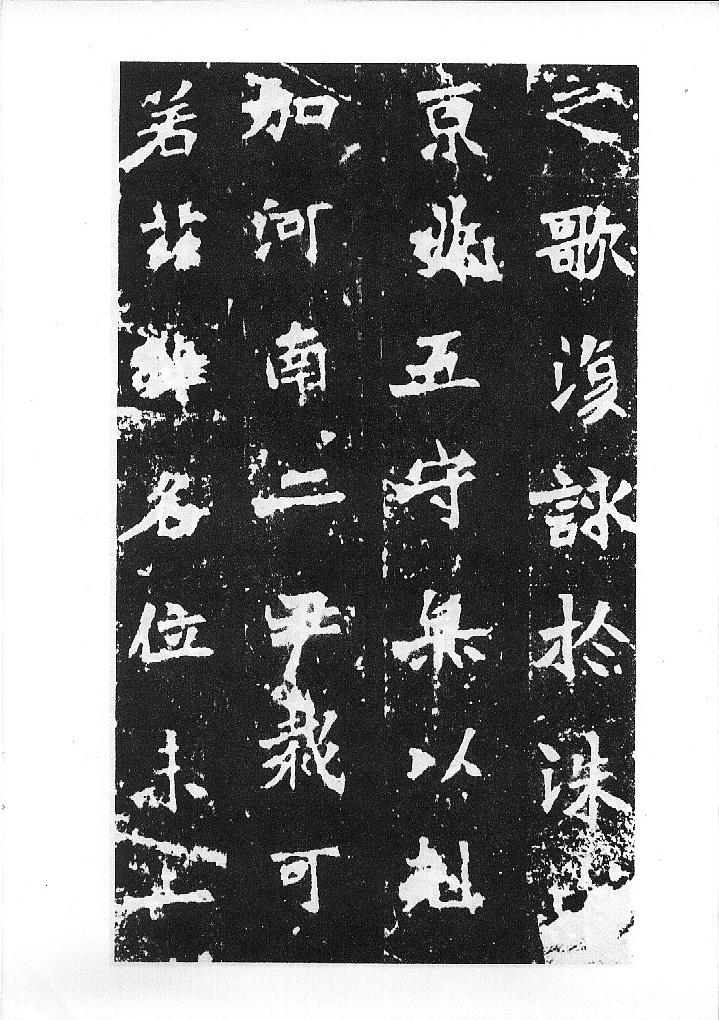 之歌復詠於洙
京兆五守無以剋
加河南二尹裁可
若茲名位未